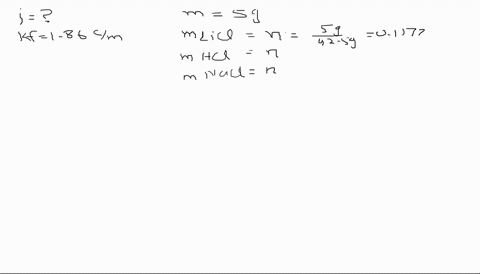 i = ?
Kf = 1.86 c/m
m = 5g
m LiCl = n = 5g / 42.5g = 0.1177
m HCl = n
m NaCl = n